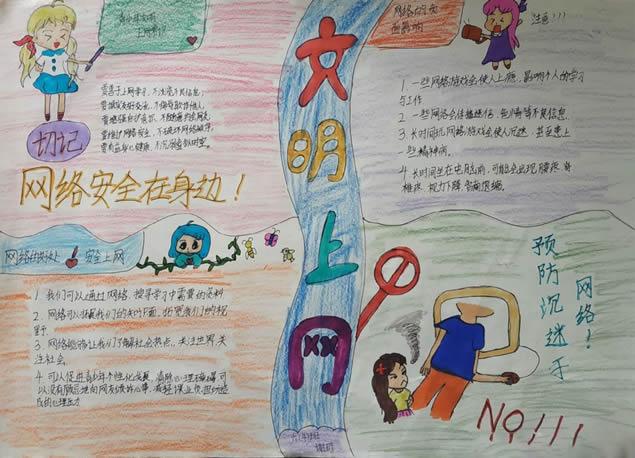 文明上网
切记
要善于网上学习,不浏览不良信息;
要诚实友好交流,不侮辱欺诈他人;
要增强自护意识,不随意约会网友;
要维护网络安全,不破坏网络秩序;
要有益身心健康,不沉溺虚拟时空。
网络安全在身边!
网络的负
面影响
注意!!!
1.一些网络游戏会使人上瘾,影响个人的学习
与工作
2.一些网络会传播迷信、色情等不良信息.
3.长时间玩网络游戏会使人沉迷,甚至患上
一些精神病.
4.长时间坐在电脑前,可能会出现腰疼、脊
椎疼、视力下降
网络的好处
安全上网
1.我们可以通过网络,搜寻学习中需要的资料
2.网络可以拓展我们的知识面,拓宽我们的视
野
3.网络能够让我们了解社会热点,关注世界,关
注社会.
4.可以促进青少年个性化发展
预防沉迷于
网络!
NO!!!